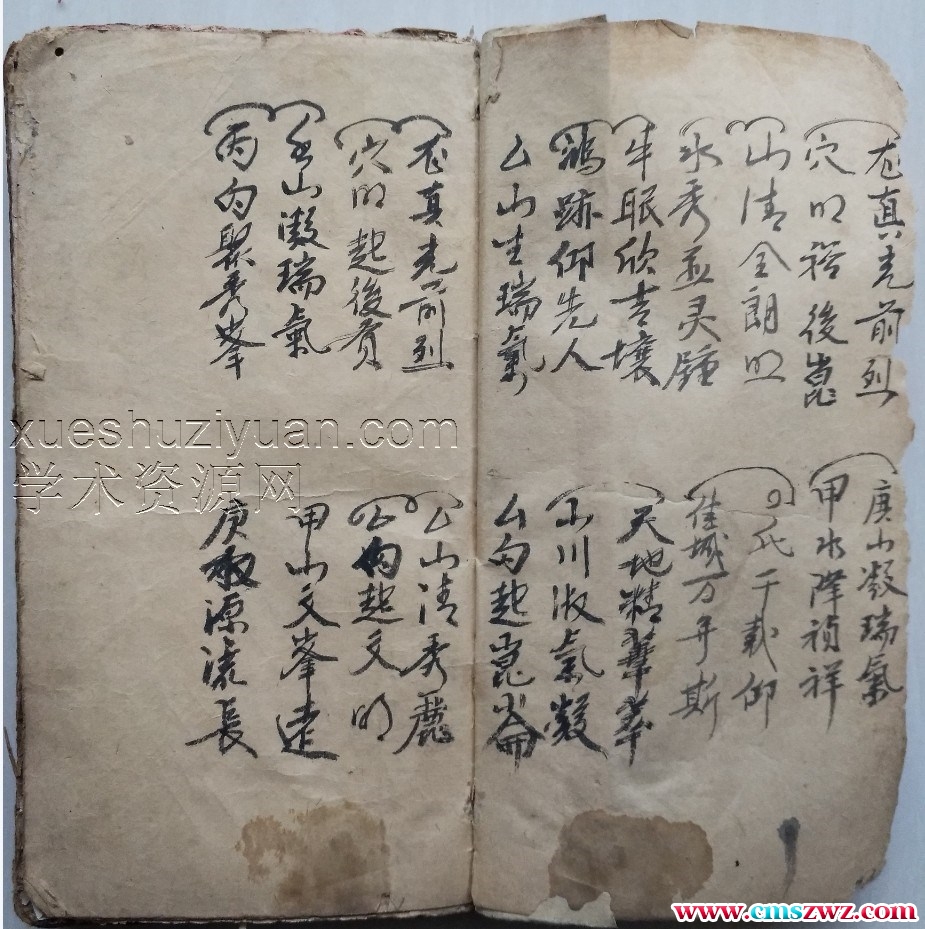 龙真光前烈
穴明裕後崑
山清全朗照
水秀並灵鍾
牛眠欣吉壤
鴻跡仰先人
厶山生瑞氣
庚山凝瑞氣
甲水降禎祥
代千載仰
佳城万年斯
天地精華萃
山川淑氣凝
厶向起崑崙
龙真光前烈
穴明起後賢
山凝瑞氣
丙向聚秀峯
厶山清秀麗
厶向起文明
甲山文峯遠
庚 源流長
xueshuziyuan.com
学术资源网
www.cmszwz.com